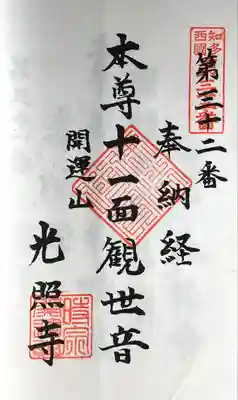 第三十二番
奉納経
本尊十一面観世音
開運山
光照寺
知多
西國
時宗